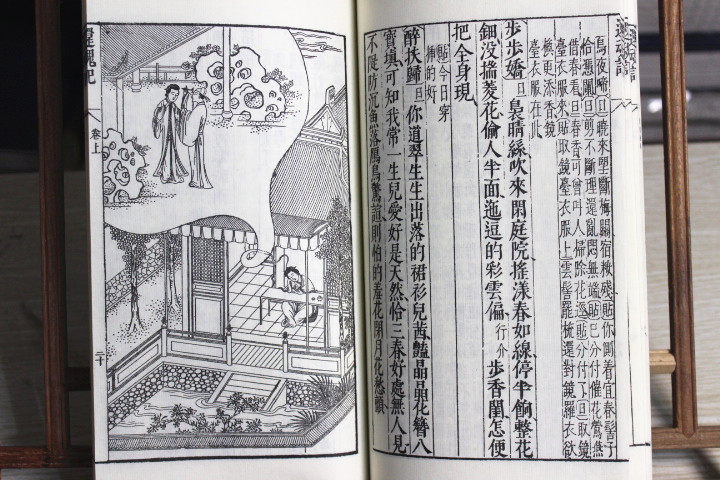 還魂記
烏夜啼旦曉來望斷梅關宿粧殘貼你側着宜春髻子
恰憑闌旦剪不斷理還亂悶無端貼已分付催花鶯燕
借春看旦春香可曾叫人掃除花逕貼分付了旦取鏡
臺衣服來貼取鏡臺衣服上雲髻罷梳還對鏡羅衣欲
換更添香鏡
臺衣服在此
步步嬌旦裊晴絲吹來閑庭院搖漾春如線停半餉整花
鈿沒揣菱花偷人半面迤逗的彩雲偏行介步香閨怎便
把全身現
貼今日穿
揷的好
醉扶歸旦你道翠生生出落的裙衫兒茜豔晶晶花簪八
寶填可知我常一生兒愛好是天然恰三春好處無人見
不隄防沉魚落鴈鳥驚諠則怕的羞花閉月花愁顫
還魂記
卷上
二十